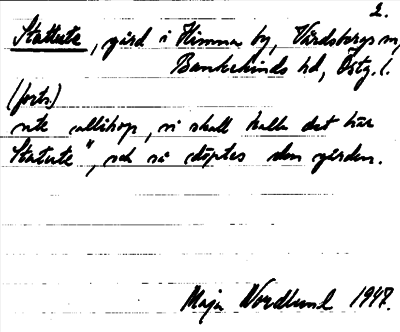 2.
Stattute, gård i Himna by, Vårdsbergs sn,
Bankekinds hd, Östg. l.
(forts.)
ute allihop, vi skall kalla det här
Statute", och så döptes den gården.
Maja Nordlund 1947.